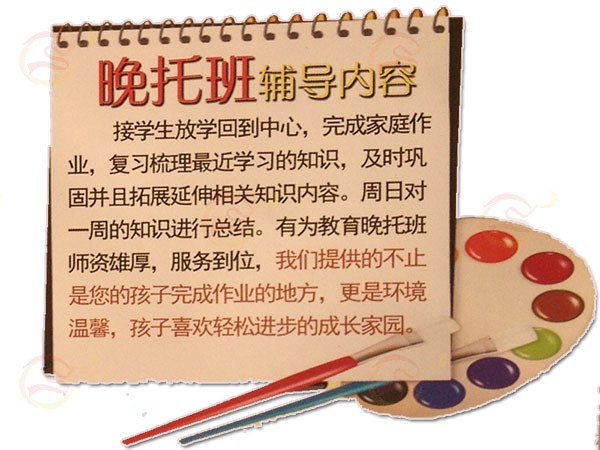 晚托班辅导内容
接学生放学回到中心，完成家庭作
业，复习梳理最近学习的知识，及时巩
固并且拓展延伸相关知识内容。周日对
一周的知识进行总结。有为教育晚托班
师资雄厚，服务到位，我们提供的不止
是您的孩子完成作业的地方，更是环境
温馨，孩子喜欢轻松进步的成长家园。